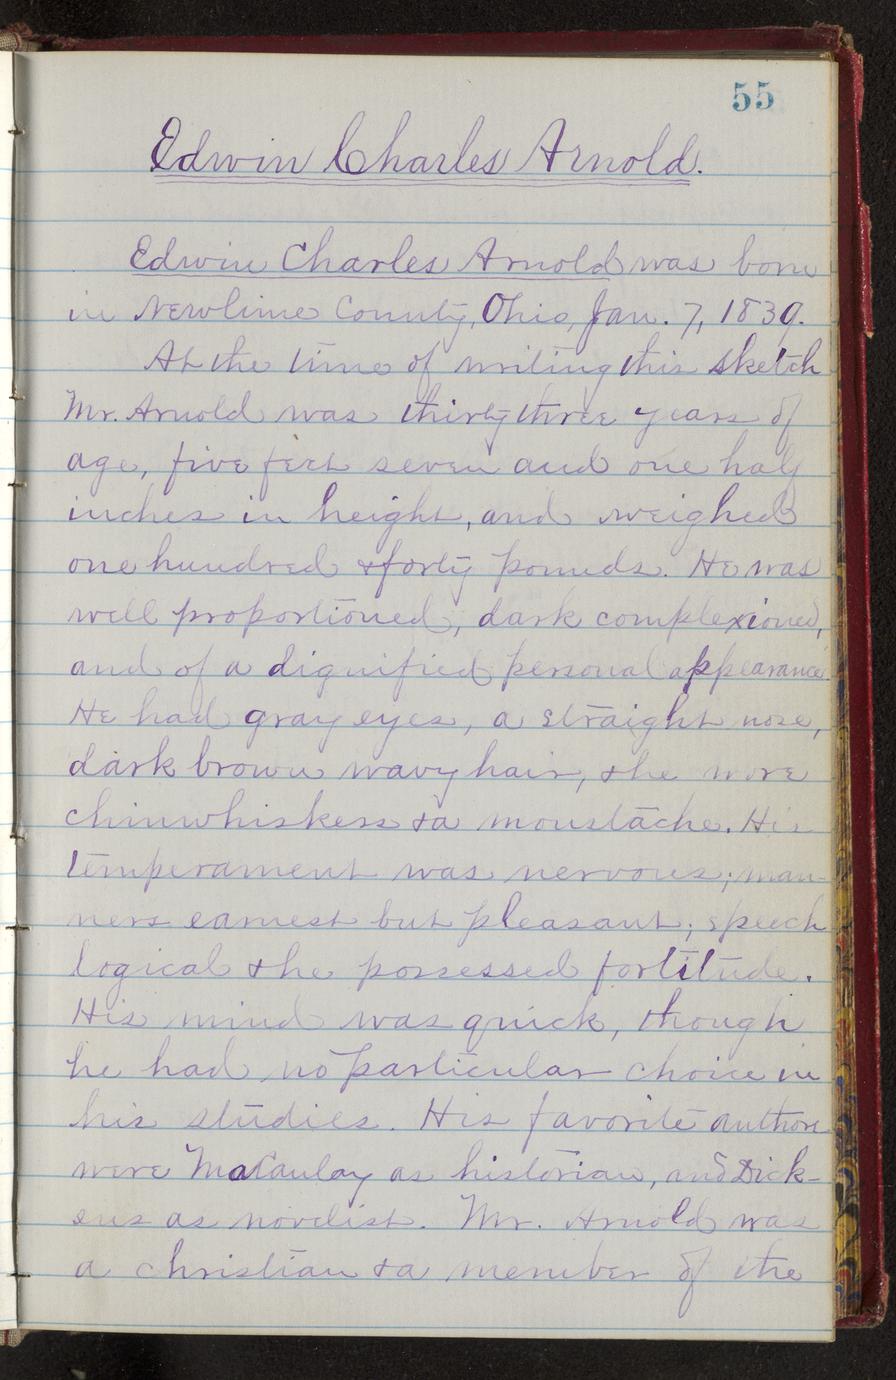 55
Edwin Charles Arnold.
Edwin Charles Arnold was born
in Newlime County, Ohio, Jan. 7, 1839.
At the time of writing this sketch
Mr. Arnold was thirty three years of
age, five feet seven and one half
inches in height, and weighed
one hundred & forty pounds. He was
well proportioned, dark complexioned,
and of a dignified personal appearance.
He had gray eyes, a straight nose,
dark brown wavy hair, & he wore
chinwhiskers & a moustache. His
temperament was nervous; man-
ners earnest but pleasant; speech
logical & he possessed fortitude.
His mind was quick, though
he had no particular choice in
his studies. His favorite authors
were Macaulay as historian, and Dick-
ens as novelist. Mr. Arnold was
a christian & a member of the